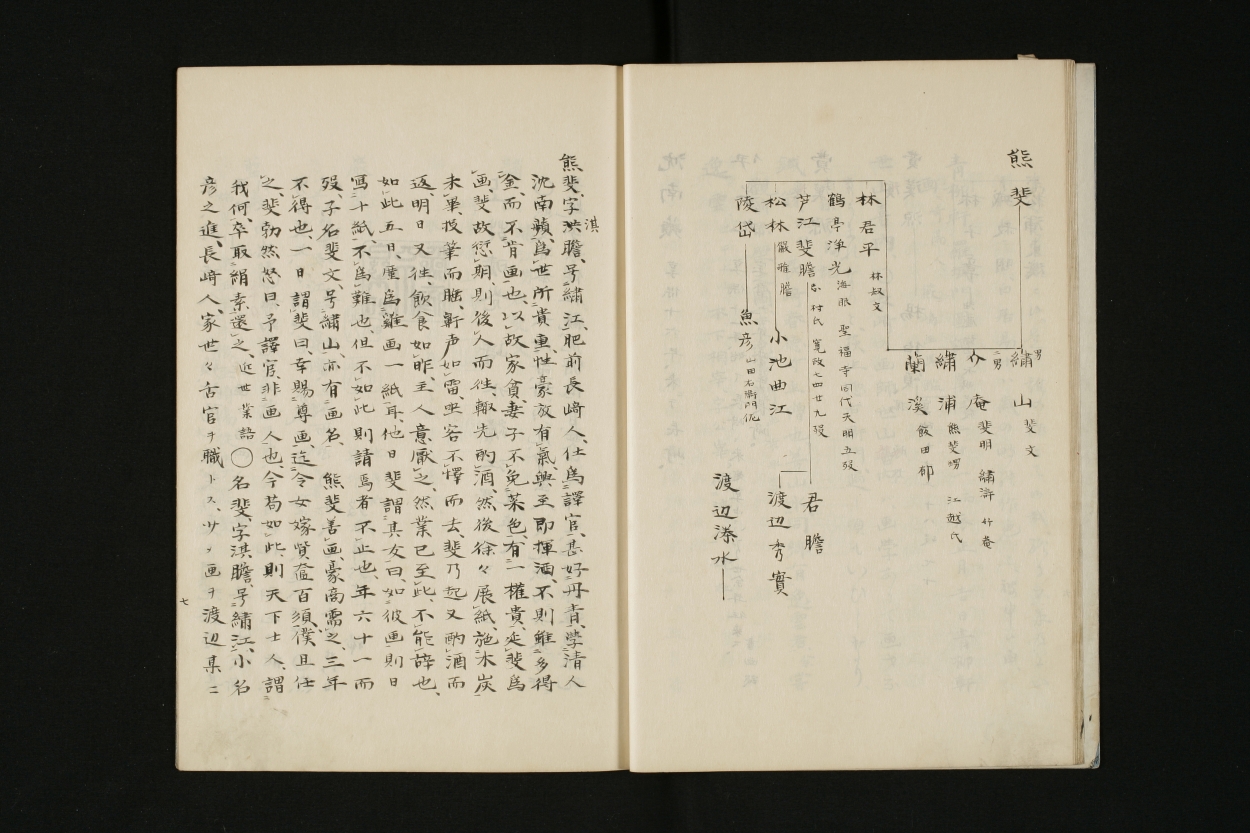 熊斐
男 繡山 斐文
二男 介庵 斐明 繡滸 竹菴
繡浦 熊斐甥 江越氏
蘭溪 飯田郁
林君平 林奴文
鶴亭浄光 海眼 聖福寺同代天明五歿
芦江斐瞻 君瞻
村氏 寛政七四廿九歿
松林 嚴雅瞻 小池曲江 渡辺秀實
陵岱 魚彦 山田右衛門佐 渡辺溱水
熊斐、字淇瞻、号繡江、肥前長﨑人、仕為譯官、甚好丹青、學清人
沈南蘋、為世所貴重、性豪放有氣、興至即揮洒、不則雖多得
金、而不肯画也、以故家貧、妻子不免菜色、有一權貴、延斐為
画、斐故愆期、則後人而往、輙先酌酒、然後徐々展紙、施木炭
未畢、投筆而睡、鼾声如雷、坐客不懌而去、斐乃起又酌酒而
返、明日又往、飲食如昨、主人意厭之、然業已至此、不能辞也、
如此五日、廑為雞画一紙耳、他日斐謂其友曰、如彼画則日
寫十紙、不為難也、但不如此則請焉者不止也、年六十一而
歿、子名斐文、号繡山、亦有画名、 熊斐善画、豪商需之、三年
不得也、一日謂斐曰、幸賜尊画、迄令女嫁貲奩百須、僕且任
之、斐勃然怒曰、予譯官、非画人也、今苟如此、則天下士人、謂
我何、卒取絹素還之、近世叢語 ◯名斐、字淇瞻、号繡江、小名
彦之進、長﨑人、家世々舌官ヲ職トス、サヲ画ヲ渡辺某ニ
七